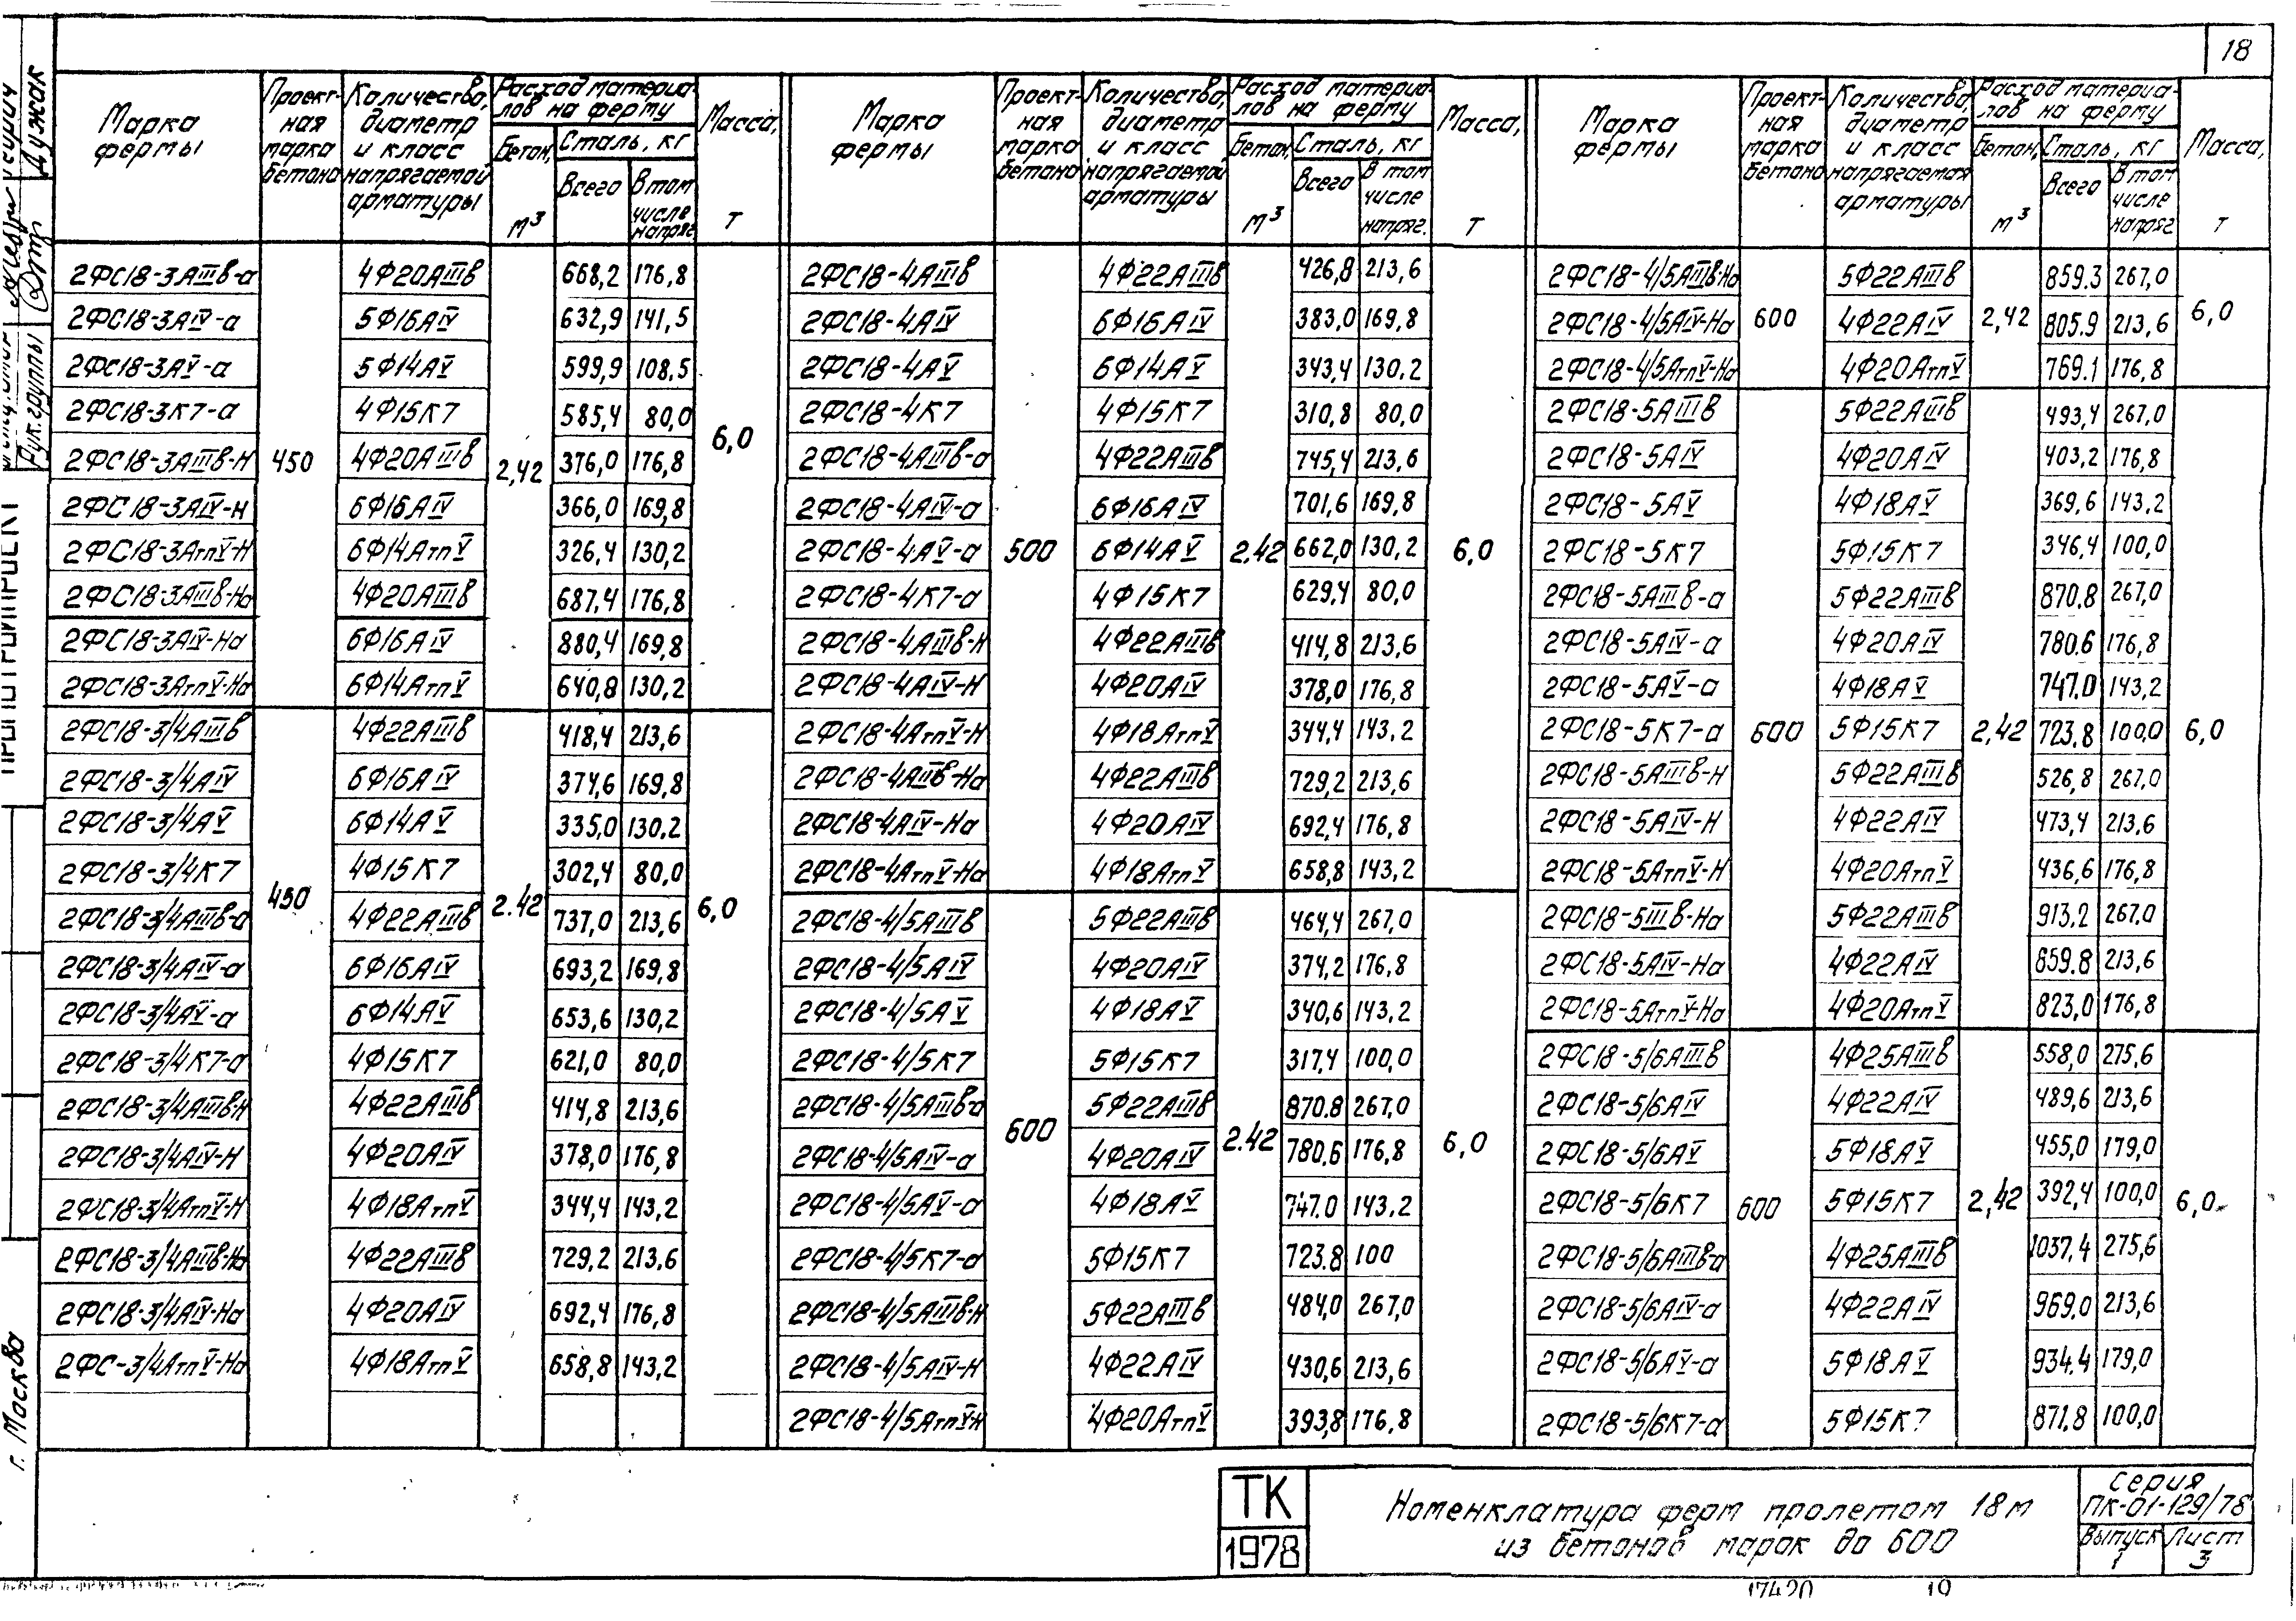 18
Марка фермы | Проектная марка бетона | Количество, диаметр и класс напрягаемой арматуры | Расход материалов на ферму | Бетон, м³ | Сталь, кг | Всего | В том числе напряг. | Масса, т
2ФС18-3АIIIв-а 4Ф20АIIIв 668,2 176,8
2ФС18-3АIV-а 5Ф16АIV 632,9 141,5
2ФС18-3АV-а 5Ф14АV 599,9 108,5
2ФС18-3К7-а 4Ф15К7 585,4 80,0
2ФС18-3АIIIв-Н 450 4Ф20АIIIв 2,42 376,0 176,8 6,0
2ФС18-3АIV-Н 6Ф16АIV 366,0 169,8
2ФС18-3АтпV-Н 6Ф14АтпV 326,4 130,2
2ФС18-3АIIIв-На 4Ф20АIIIв 687,4 176,8
2ФС18-3АIV-На 6Ф16АIV 880,4 169,8
2ФС18-3АтпV-На 6Ф14АтпV 640,8 130,2
2ФС18-3/4АIIIв 4Ф22АIIIв 418,4 213,6
2ФС18-3/4АIV 6Ф16АIV 374,6 169,8
2ФС18-3/4АV 6Ф14АV 335,0 130,2
2ФС18-3/4К7 4Ф15К7 302,4 80,0
2ФС18-3/4АIIIв-а 450 4Ф22АIIIв 2.42 737,0 213,6 6,0
2ФС18-3/4АIV-а 6Ф16АIV 693,2 169,8
2ФС18-3/4АV-а 6Ф14АV 653,6 130,2
2ФС18-3/4К7-а 4Ф15К7 621,0 80,0
2ФС18-3/4АIIIв-Н 4Ф22АIIIв 414,8 213,6
2ФС18-3/4АIV-Н 4Ф20АIV 378,0 176,8
2ФС18-3/4АтпV-Н 4Ф18АтпV 344,4 143,2
2ФС18-3/4АIIIв-На 4Ф22АIIIв 729,2 213,6
2ФС18-3/4АIV-На 4Ф20АIV 692,4 176,8
2ФС-3/4АтпV-На 4Ф18АтпV 658,8 143,2
Марка фермы | Проектная марка бетона | Количество, диаметр и класс напрягаемой арматуры | Расход материалов на ферму | Бетон, м³ | Сталь, кг | Всего | В том числе напряг. | Масса, т
2ФС18-4АIIIв 4Ф22АIIIв 426,8 213,6
2ФС18-4АIV 6Ф16АIV 383,0 169,8
2ФС18-4АV 6Ф14АV 343,4 130,2
2ФС18-4К7 4Ф15К7 310,8 80,0
2ФС18-4АIIIв-а 4Ф22АIIIв 745,4 213,6
2ФС18-4АIV-а 6Ф16АIV 701,6 169,8
2ФС18-4АV-а 500 6Ф14АV 2.42 662,0 130,2 6,0
2ФС18-4К7-а 4Ф15К7 629,4 80,0
2ФС18-4АIIIв-Н 4Ф22АIIIв 414,8 213,6
2ФС18-4АIV-Н 4Ф20АIV 378,0 176,8
2ФС18-4АтпV-Н 4Ф18АтпV 344,4 143,2
2ФС18-4АIIIв-На 4Ф22АIIIв 729,2 213,6
2ФС18-4АIV-На 4Ф20АIV 692,4 176,8
2ФС18-4АтпV-На 4Ф18АтпV 658,8 143,2
2ФС18-4/5АIIIв 5Ф22АIIIв 464,4 267,0
2ФС18-4/5АIV 4Ф20АIV 374,2 176,8
2ФС18-4/5АV 4Ф18АV 340,6 143,2
2ФС18-4/5К7 5Ф15К7 317,4 100,0
2ФС18-4/5АIIIв-а 600 5Ф22АIIIв 2.42 870.8 267,0 6,0
2ФС18-4/5АIV-а 4Ф20АIV 780.6 176,8
2ФС18-4/5АV-а 4Ф18АV 747.0 143.2
2ФС18-4/5К7-а 5Ф15К7 723.8 100
2ФС18-4/5АIIIв-Н 5Ф22АIIIв 484,0 267,0
2ФС18-4/5АIV-Н 4Ф22АIV 430,6 213,6
2ФС18-4/5АтпV-Н 4Ф20АтпV 393,8 176,8
Марка фермы | Проектная марка бетона | Количество, диаметр и класс напрягаемой арматуры | Расход материалов на ферму | Бетон, м³ | Сталь, кг | Всего | В том числе напряг | Масса, т
2ФС18-4/5АIIIв-На 5Ф22АIIIв 859.3 267,0
2ФС18-4/5АIV-На 600 4Ф22АIV 2,42 805.9 213,6 6,0
2ФС18-4/5АтпV-На 4Ф20АтпV 769.1 176,8
2ФС18-5АIIIв 5Ф22АIIIв 493,4 267,0
2ФС18-5АIV 4Ф20АIV 403,2 176,8
2ФС18-5АV 4Ф18АV 369,6 143,2
2ФС18-5К7 5Ф15К7 346,4 100,0
2ФС18-5АIIIв-а 5Ф22АIIIв 870,8 267,0
2ФС18-5АIV-а 4Ф20АIV 780.6 176,8
2ФС18-5АV-а 4Ф18АV 747.0 143,2
2ФС18-5К7-а 600 5Ф15К7 2,42 723.8 100,0 6,0
2ФС18-5АIIIв-Н 5Ф22АIIIв 526,8 267,0
2ФС18-5АIV-Н 4Ф22АIV 473,4 213,6
2ФС18-5АтпV-Н 4Ф20АтпV 436,6 176,8
2ФС18-5IIIв-На 5Ф22АIIIв 913,2 267,0
2ФС18-5АIV-На 4Ф22АIV 859.8 213,6
2ФС18-5АтпV-На 4Ф20АтпV 823,0 176,8
2ФС18-5/6АIIIв 4Ф25АIIIв 558,0 275,6
2ФС18-5/6АIV 4Ф22АIV 489,6 213,6
2ФС18-5/6АV 5Ф18АV 455,0 179,0
2ФС18-5/6К7 600 5Ф15К7 2,42 392,4 100,0 6,0
2ФС18-5/6АIIIв-а 4Ф25АIIIв 1037,4 275,6
2ФС18-5/6АIV-а 4Ф22АIV 969,0 213,6
2ФС18-5/6АV-а 5Ф18АV 934.4 179,0
2ФС18-5/6К7-а 5Ф15К7 871.8 100,0
ТК
1978
Номенклатура ферм пролетом 18м
из бетонов марок до 600
серия
ПК-01-129/78
Выпуск Лист
1 3
17420 19
Дужак
Рук.группы
г. Москва